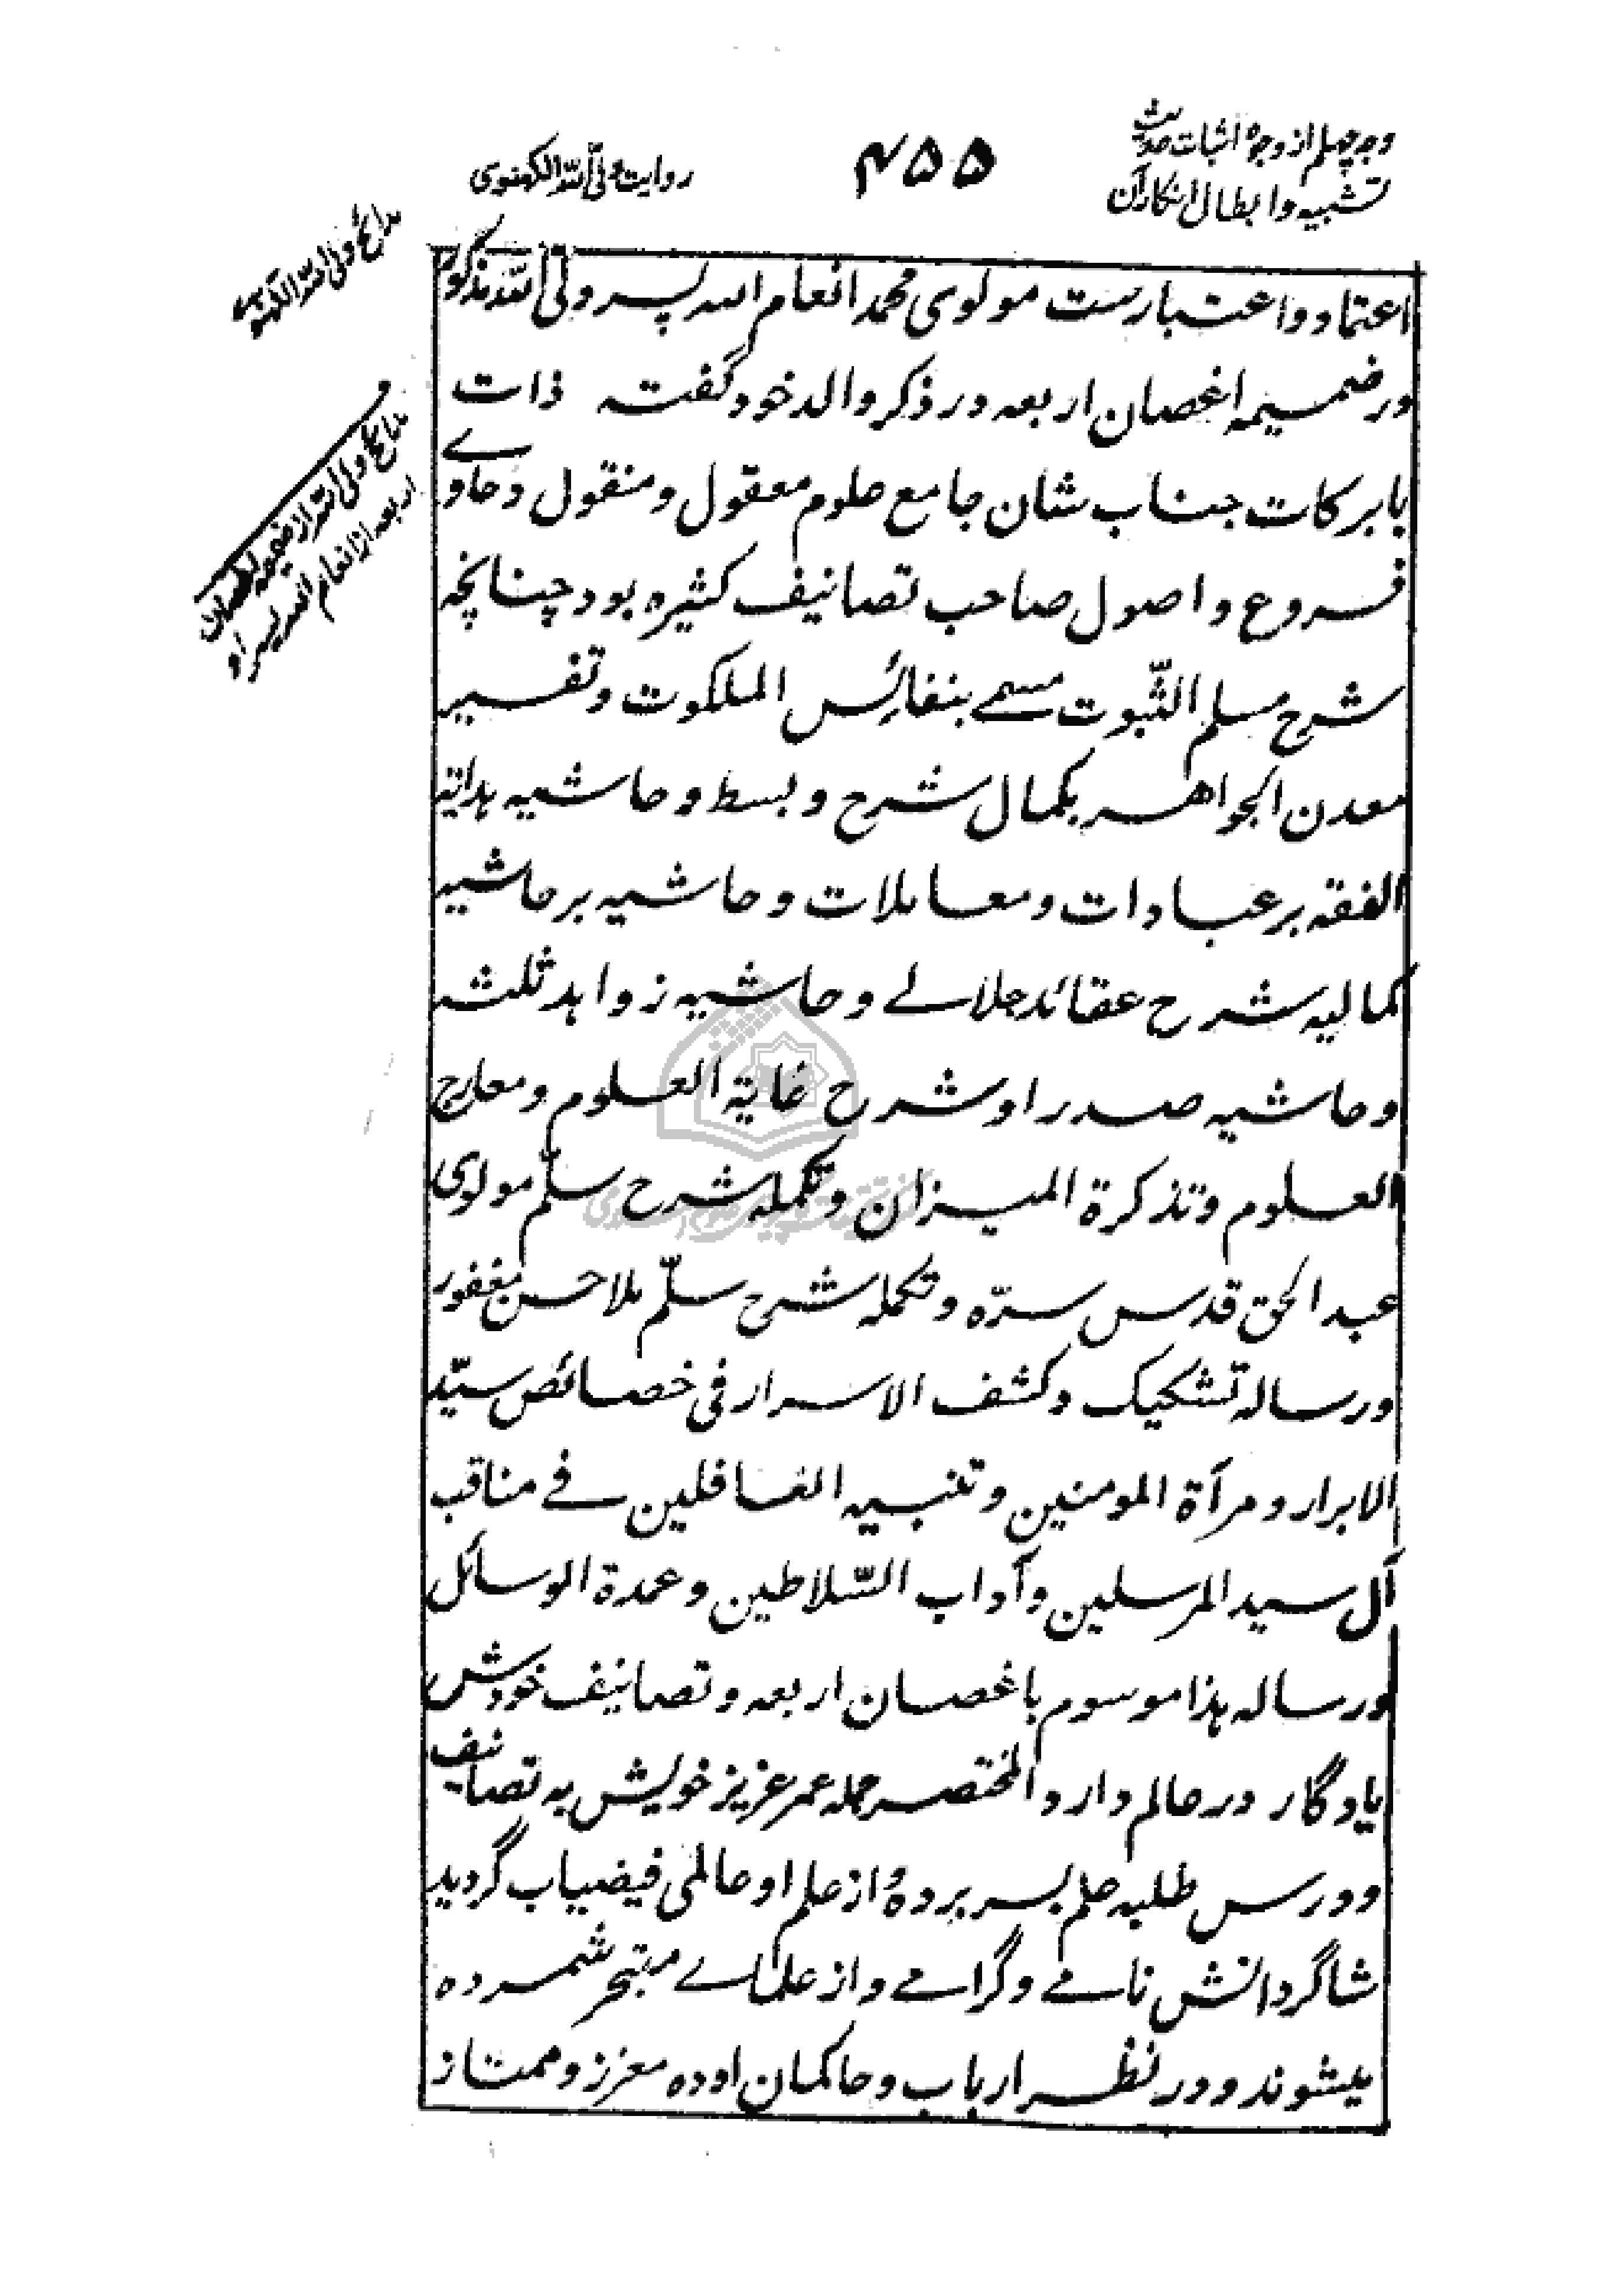 وجه چهلم از وجوه اثبات حدیث
تشبیه وابطال انکار آن
۴۵۵
روایت ولی اللّه الکهنوی
مدائح ولی اللّه الکهنوی
مدائح ولی اللّه از ضمیمه اغصان
اربعه از انعام اللّه پسر او
اعتماد و اعتبارست مولوی محمد انعام اللّه پسر ولی اللّه مذکور
در ضمیمه اغصان اربعه در ذکر والد خود گفته ذات
بابرکات جناب شان جامع علوم معقول و منقول و حاوے
فروع و اصول صاحب تصانیف کثیره بود چنانچه
شرح مسلم الثّبوت مسمے بنفائس الملکوت و تفسیر
معدن الجواهر بکمال شرح و بسط و حاشیه هدایة
الفقه بر عبادات و معاملات و حاشیه بر حاشیه
کمالیه شرح عقائد جلالے و حاشیه زواهد ثلثه
و حاشیه صدرا و شرح غایة العلوم و معارج
العلوم و تذکرة المیزان و تکمله شرح سلّم مولوی
عبد الحق قدس سرّه و تکمله شرح سلّم ملا حسن مغفور
و رساله تشکیک و کشف الاسرار فی خصائص سیّد
الابرار و مرآة المومنین و تنبیه الغافلین فے مناقب
آل سید المرسلین و آداب السّلاطین و عمدة الوسائل
و رساله هذا موسوم باغصان اربعه و تصانیف خودش
یادگار در عالم دارد المختصر جمله عمر عزیز خویش به تصانیف
و درس طلبه علم بسر برده و از علم او عالمی فیضیاب گردید
شاگردانش نامے و گرامے و از علماے متبحر شمرده
میشوند و در نظر ارباب و حاکمان اوده معزز و ممتاز